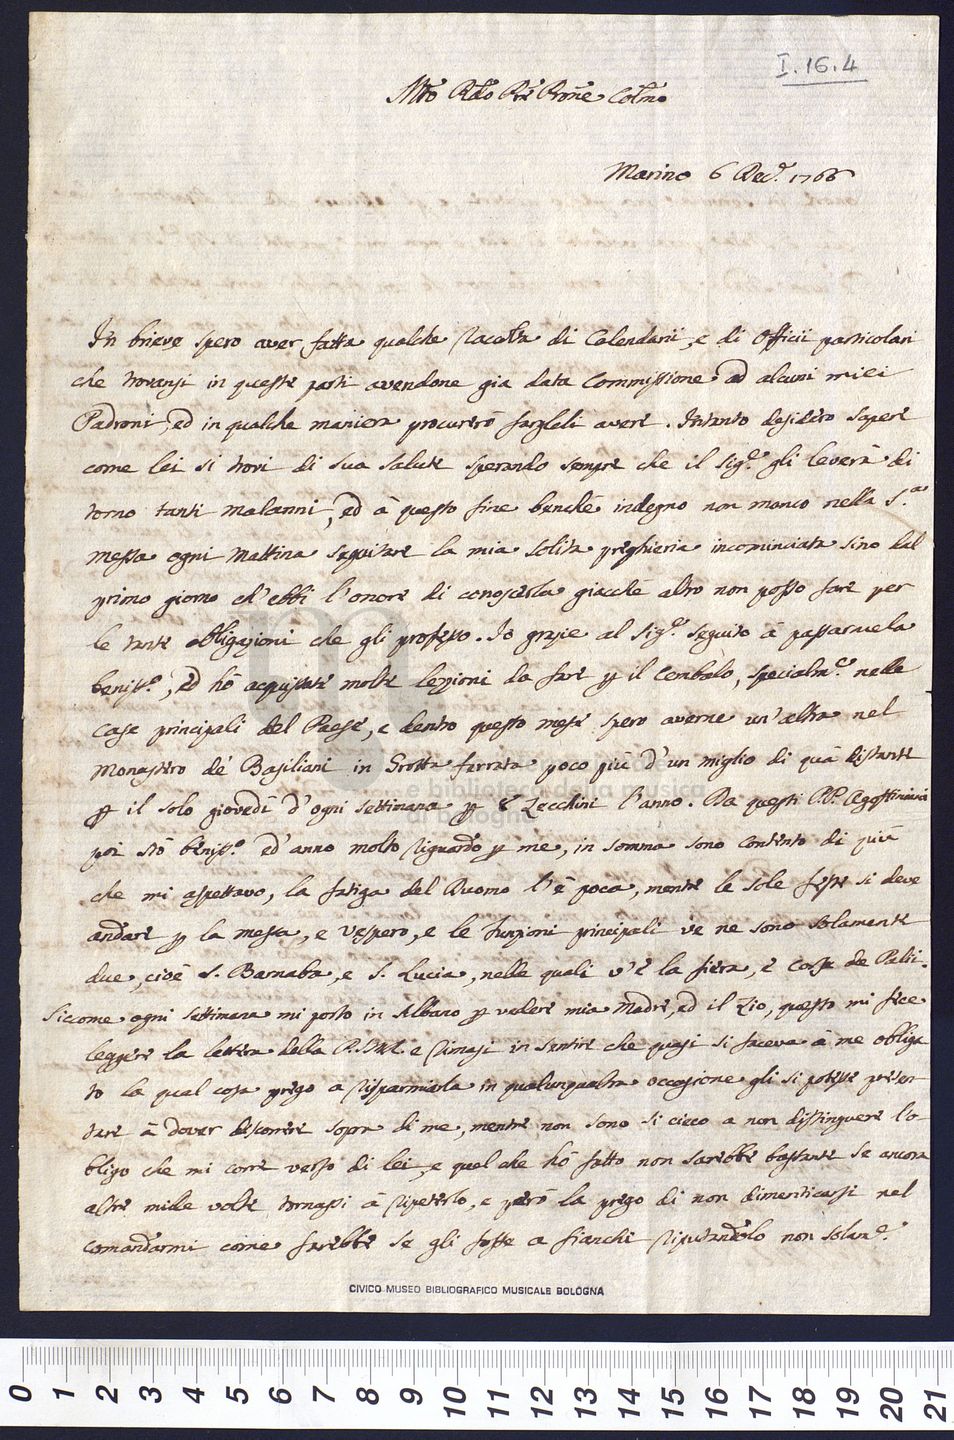 I.16.4
Mto Rdo Pre Prone Colmo
Marino 6 Dec.e 1766
In brieve spero aver fatta qualche racolta di Calendarii, e di Officii particolari
che trovansi in queste parti avendone gia data Commissione ad alcuni miei
Padroni, ed in qualche maniera procurerò farglieli avere. Intanto desidero sapere
come lei si trovi di sua salute sperando sempre che il Sig.e gli leverà di
torno tanti malanni, ed à questo fine benchè indegno non manco nella S.a
messa ogni mattina seguitare la mia solita preghiera incominciata sino dal
primo giorno ch'ebbi l'onore di conoscerla giacchè altro non posso fare per
le tante obligazioni che gli professo. Io grazie al Sig.e seguito à passarmela
beniss.o, ed hò acquistate molte lezzioni da fare p il Cembalo, specialm.e nelle
case principali del Paese, e dentro questo mese spero averne un'altra nel
Monastero de' Basiliani in Grotta ferrata poco più d'un miglio di quà distante
p il solo giovedì d'ogni settimana p 8 Zecchini l'anno. Da questi PP. Agostiniani
poi stò beniss.o ed'anno molto riguardo p me, in somma sono contento di più
che mi aspettavo, la fatiga del Duomo l'è poca, mentre le sole feste si deve
andare p la messa, e Vespero, e le funzioni principali ve ne sono solamente
due, cioè S. Barnaba, e S. Lucia, nelle quali v'è la fiera, e corse de Palii.
Siccome ogni settimana mi porto in Albano p vedere mia Madre, ed il Zio, questo mi fece
leggere la lettera della P.V.M.R. e rimasi in sentire che quasi si faceva à me obliga
to la qual cosa prego a risparmiarla in qualunqualtra occasione gli si potesse presen
tare à dover discorrere sopra di me, mentre non sono si cieco a non distinguere l'o
bligo che mi corre verso di lei, e quel che hò fatto non sarebbe bastante se ancora
altre mille volte tornassi à ripeterlo, e però la prego di non dimenticarsi nel
comandarmi come farebbe se gli fosse a fianchi riputandolo non solam.e
CIVICO MUSEO BIBLIOGRAFICO MUSICALE BOLOGNA
e biblioteca della musica
di bologna
0 1 2 3 4 5 6 7 8 9 10 11 12 13 14 15 16 17 18 19 20 21